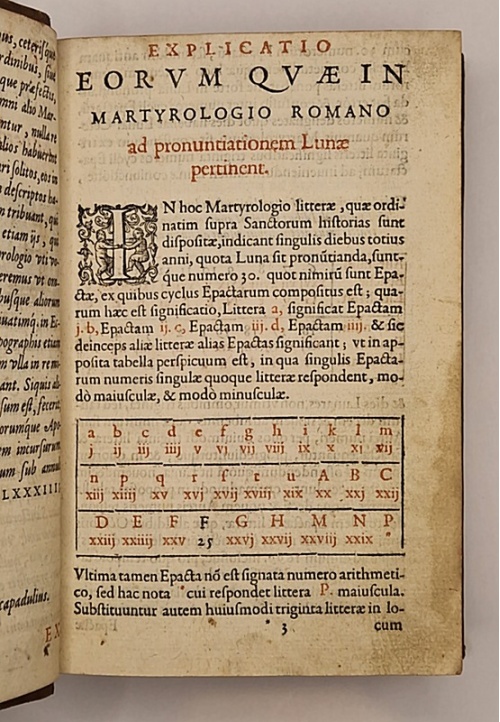 us, ceterisque
rdinibus, siue
que præfectis,
mni alio Mar-
ntur, nulla re
alios habuerint
ari solitos, eos in
descriptos ha-
n tribuant, qui
etiam ijs, qui
rologio vti vo-
eremus vt om-
busque aliorum
in ei-
pographis etiam
m vlla in re mu-
ant. Siquis ali-
sum est, fecerit,
orumque Apo-
em incursurum
um sub annulo
LXXXIIII
capadulius.
EX
EXPLICATIO
EORVM QVÆ IN
MARTYROLOGIO ROMANO
ad pronuntiationem Lunæ
pertinent.
IN hoc Martyrologio litteræ, quæ ordi-
natim supra Sanctorum historias sunt
dispositæ, indicant singulis diebus totius
anni, quota Luna sit pronūtianda, sunt-
que numero 30. quot nimirū sunt Epa-
ctæ, ex quibus cyclus Epactarum compositus est; qua-
rum hæc est significatio, Littera a, significat Epactam
j. b, Epactam ij. c, Epactam iij. d, Epactam iiij. & sic
deinceps aliæ litteræ alias Epactas significant; vt in ap-
posita tabella perspicuum est, in qua singulis Epacta-
rum numeris singulæ quoque litteræ respondent, mo-
dò maiusculæ, & modò minusculæ.
a b c d e f g h i k l m
j ij iij iiij v vj vij viij ix x xj xij
n p q r f t u A B C
xiij xiiij xv xvj xvij xviij xix xx xxj xxij
D E F F G H M N P
xxiij xxiiij xxv 25 xxvj xxvij xxviij xxix *
Vltima tamen Epacta nō est signata numero arithmeti-
co, sed hac nota * cui respondet littera P. maiuscula.
Substituuntur autem huiusmodi triginta litteræ in lo-
3 cum